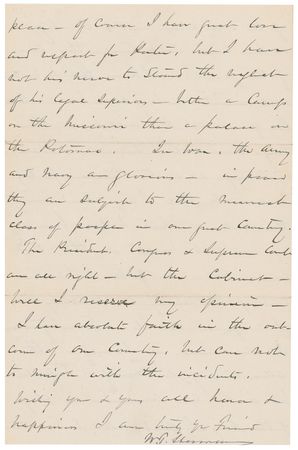 peace - of course I have great love
and respect for Porter, but I have
not his nerve to stand the neglect
of his legal Superiors - better a Camp
on the Missouri than a palace on
the Potomac. In War, the Army
and Navy are glorious - in peace
they are subject to the meanest
class of people in our great Country.
The President, Congress & Supreme Court
are all right - but the Cabinet -
well I reserve my opinion -
I have absolute faith in the out-
come of our Country, but care not
to mingle with the incidents.
Wishing you & yours all honor &
happiness I am truly yr friend
W. T. Sherman